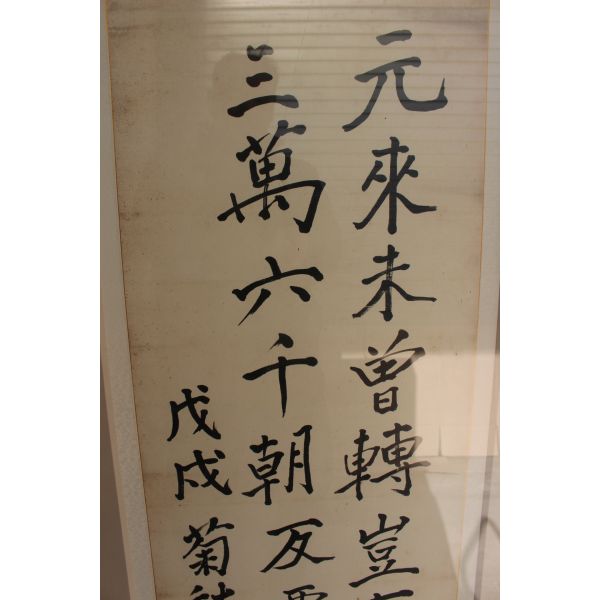 元來未曾轉豈
三萬六千朝反
戊戌菊